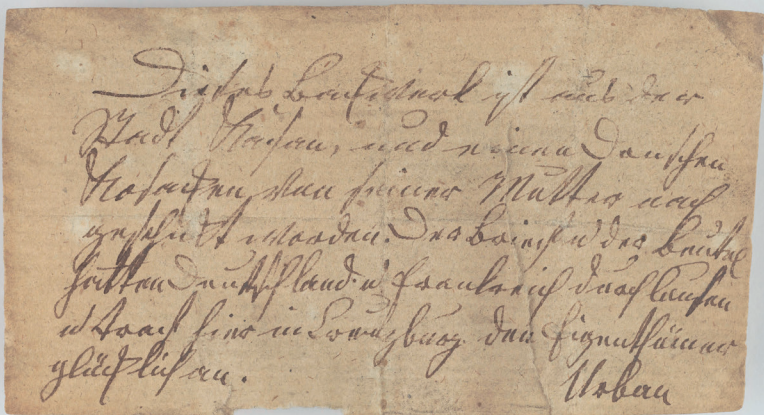 Dieses Backwerk ist aus der
Stadt Kasan, und einen Donschen
Kosacken von seiner Mutter nach
geschickt worden. Der Brief u der Beutel
hatten Deutschland u Frankreich durchlaufen
u traf hier in Creuzburg den Eigenthümer
glücklich an.
Urban